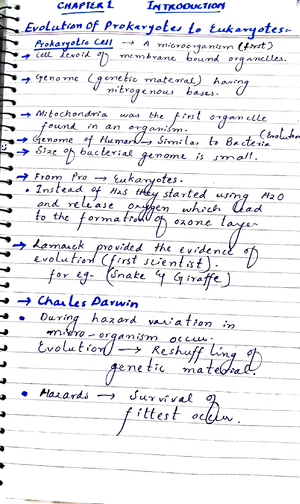 CHAPTER 1 INTRODUCTION
Evolution Of Prokaryotes to Eukaryotes:-
Prokaryotic Cell → A microorganism (first)
→ Cell devoid of membrane bound organelles.
→ Genome (genetic material) having
nitrogenous bases.
→ Mitochondria was the first organelle
found in an organism.
(Evolution
→ Genome of Human → Similar to Bacteria
→ Size of bacterial genome is small.
→ From Pro → Eukaryotes.
• Instead of H2S they started using H2O
and release oxygen which lead
to the formation of ozone layer
→ Lamarck provided the evidence of
evolution (first scientist).
for eg- (Snake & Giraffe)
→ Charles Darwin
• During hazard variation in
micro-organism occur.
Evolution → Reshuffling of
genetic material.
• Hazards → Survival of
fittest occur.